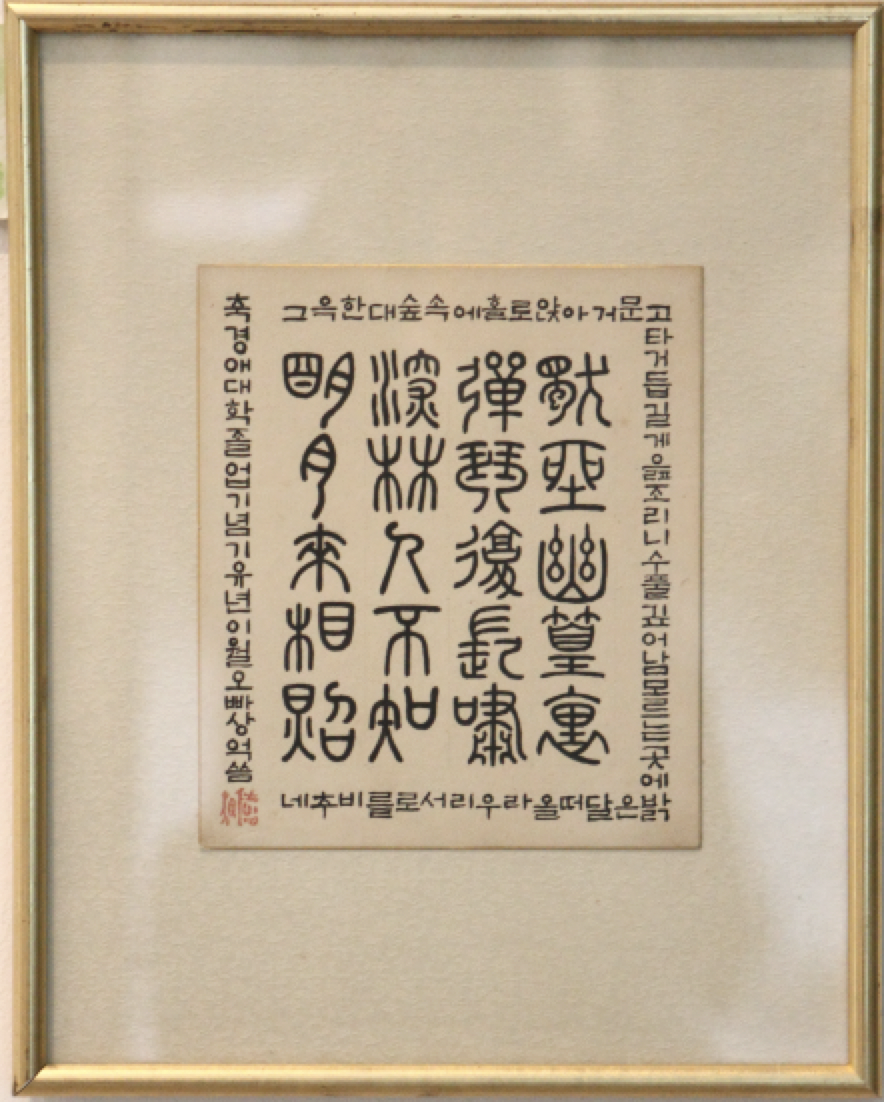 그윽한대숲속에홀로앉아거문고
타거듭길게읊조리니수풀깊어남모르는곳에
밝은달떠올라우리서로를비추네
獨坐幽篁裏
彈琴復長嘯
深林人不知
明月來相照
축경애대학졸업기념기유년이월오빠상억씀